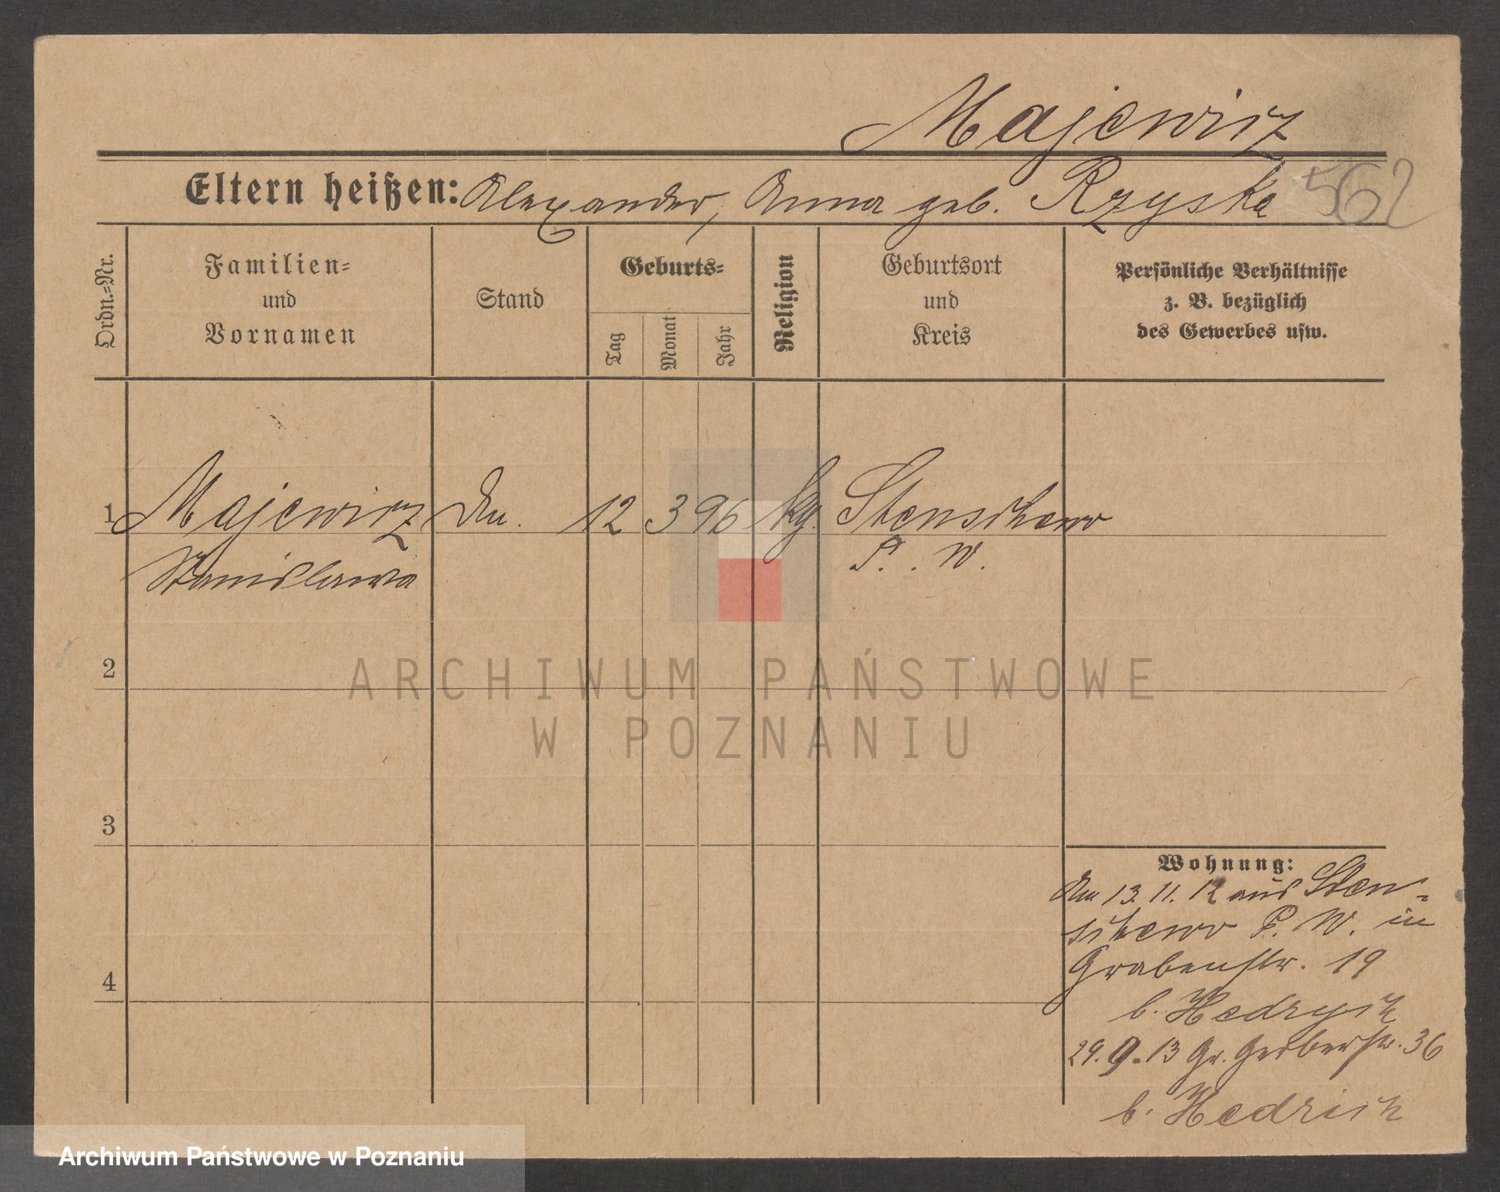 Majewicz
Eltern heißen: Alexander, Anna geb. Rzyska 562
Ordn.-Nr.
Familien-
und
Vornamen
Stand
Geburts-
Tag
Monat
Jahr
Religion
Geburtsort
und
Kreis
Persönliche Verhältnisse
z. B. bezüglich
des Gewerbes usw.
1 Majewicz 12 3 96 Stenschewo
Stanislawa P. W.
2
ARCHIWUM PAŃSTWOWE
W POZNANIU
3
Wohnung:
Am 13. 11. 12 aus Sten-
schewo P. W. in
Grabenstr. 19
b. Hedrysch
29. 9. 13 Gr. Gerberstr. 36
b. Hedrich
4
Archiwum Państwowe w Poznaniu